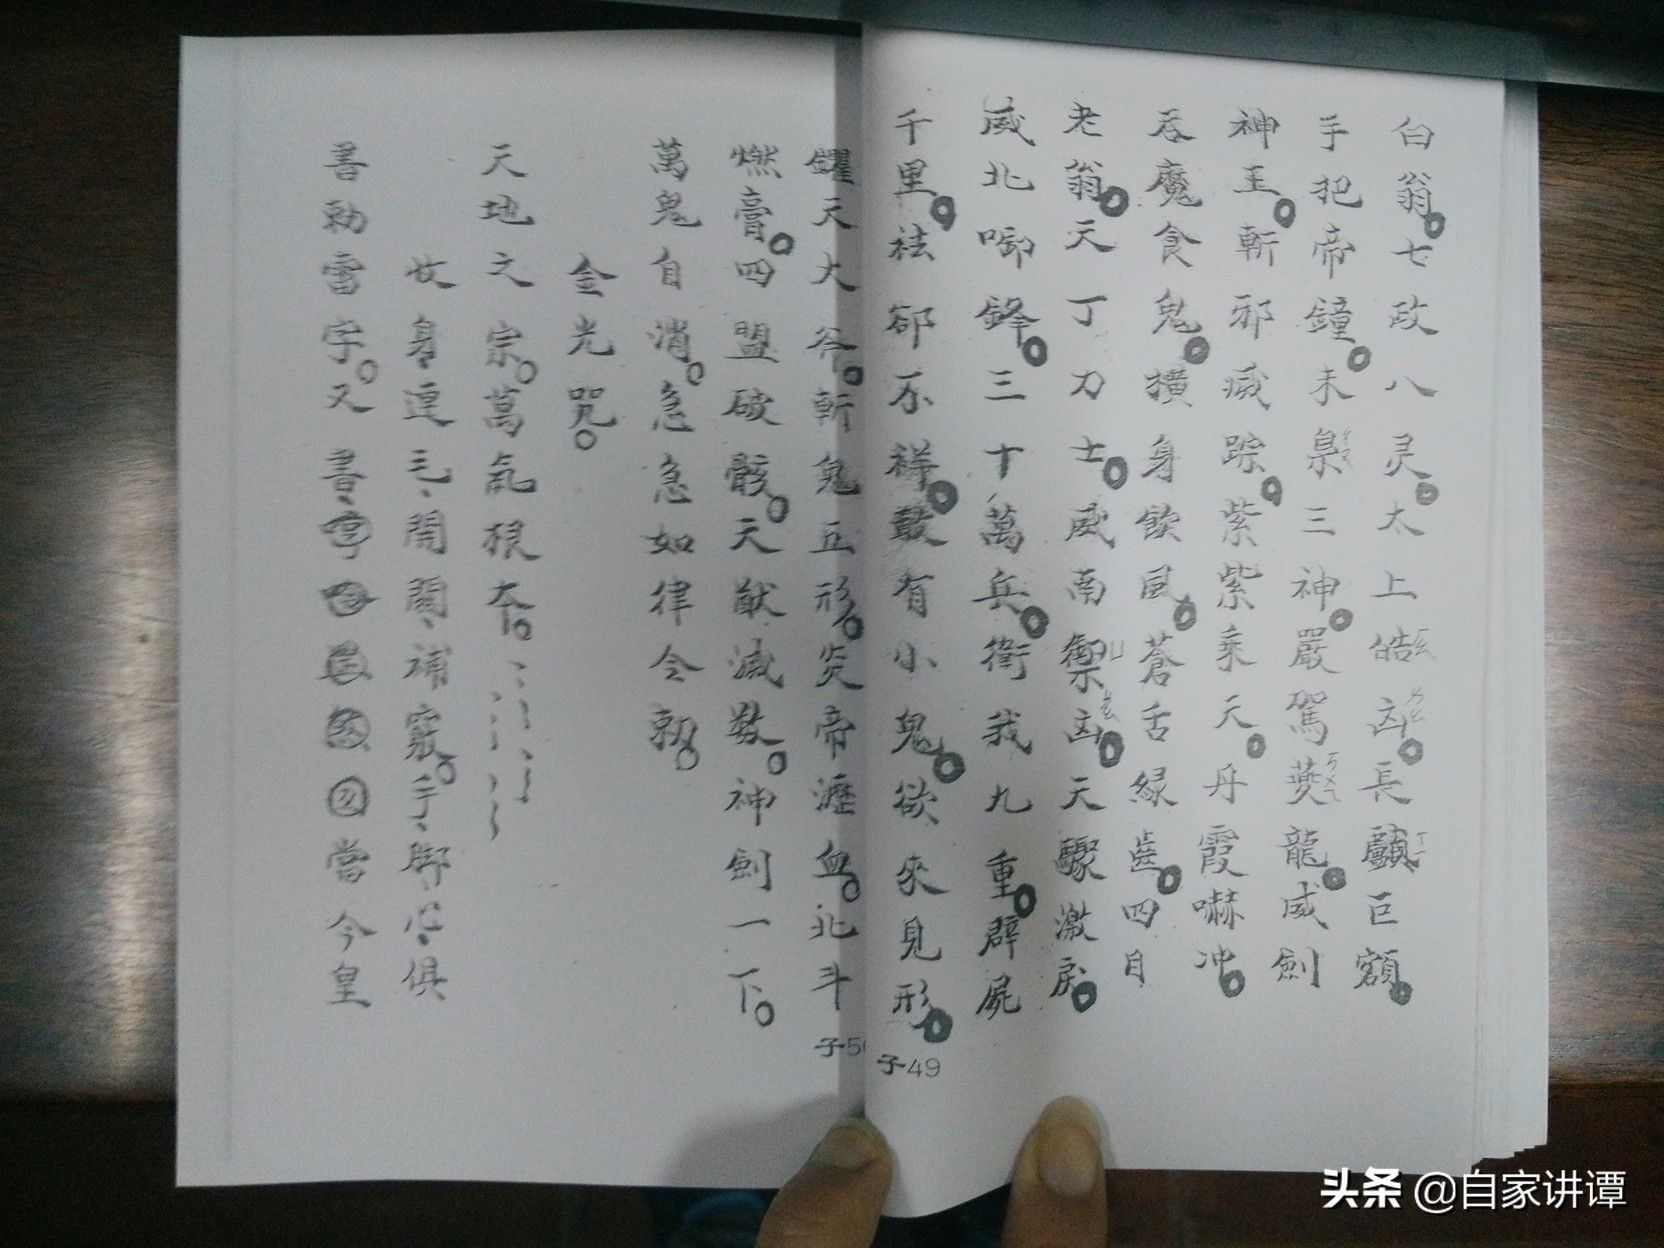 臼翁。七政八灵。太上皓凶。長顱巨額。
手把帝鐘。未梟三神。嚴駕夔龍。威劍
神王。斬邪滅踪。紫紫乘天。丹霞嚇冲。
吞魔食鬼。横身飲風。蒼舌緑齒。四目
老翁。天丁力士。威南禦凶。天騶激戾。
威北啣鋒。三十萬兵。衛我九重。辟屍
千里。祛郤不祥。敢有小鬼。欲來見形。
子49
钁天大斧。斬鬼五形。炎帝瀝血。北斗
燃膏。四盟破骸。天猷滅類。神劍一下。
萬鬼自消。急急如律令勅。
金光咒。
天地之宗。萬氣根本。
次身運毛開闔補竅。手脚心俱
書勅雷字。又書
當今皇
子50
头条 @自家讲谭